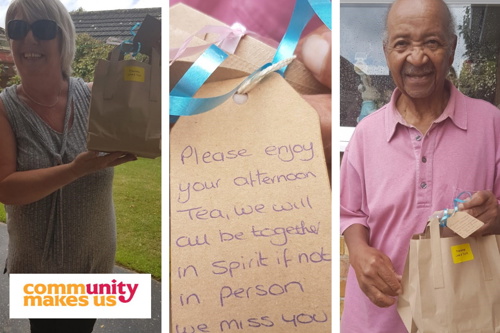 Please enjoy
your afternoon
Tea, we will
all be together
in Spirit if not
in Person
we miss you
community
makes us